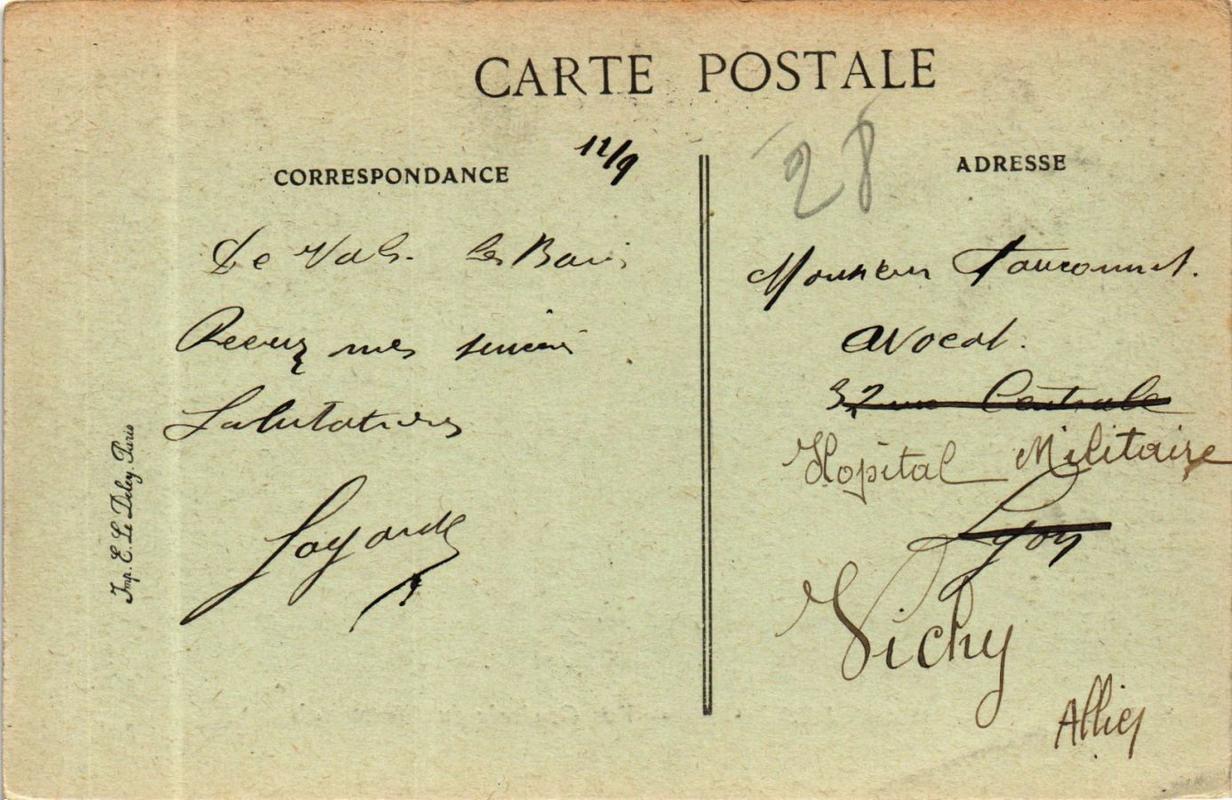 CARTE POSTALE
CORRESPONDANCE
11/9
De Vals les Bains
Recevez mes sincères
Salutations
Imp. E. Le Deley, Paris
28
ADRESSE
Monsieur
avocat.
32 rue Centrale
Hopital Militaire
Lyon
Vichy
Allier